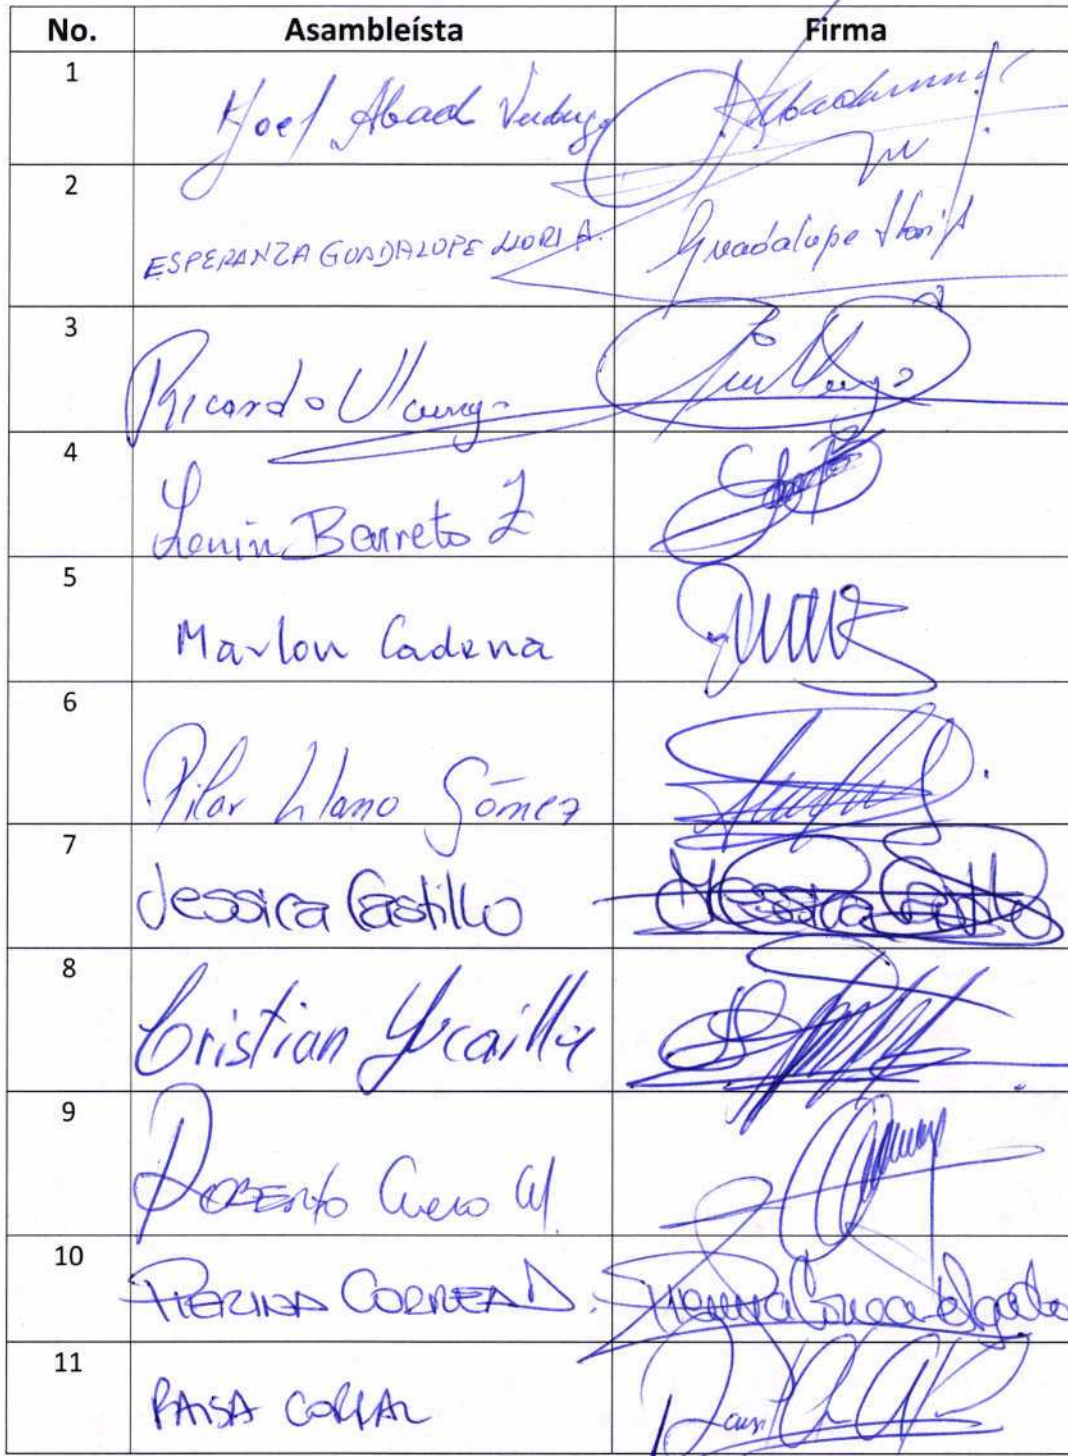 No. Asambleísta Firma
1 Joel Abad Verdugo
2 ESPERANZA GUADALUPE LLORI A. Guadalupe Llori A
3 Ricardo Vanegas
4 Lenin Barreto Z
5 Marlon Cadena
6 Pilar Llano Gómez
7 Jessica Castillo Jessica Castillo
8 Cristian Yucailla
9 ROBERTO Cuero M.
10 PIERINA CORREA D. Pierina Correa Delgado
11 RAISA CORRAL